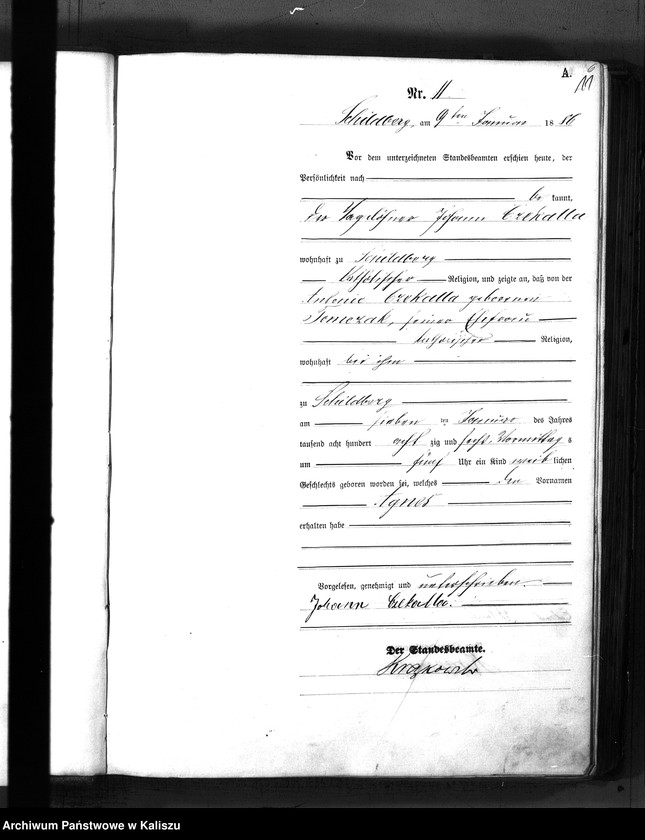 A.
11
Nr. 11
Schildberg, am 9ten Januar 1886
Vor dem unterzeichneten Standesbeamten erschien heute, der
Persönlichkeit nach
be kannt,
der Tagelöhner Johann Czekalla
wohnhaft zu Schildberg
katholischer Religion, und zeigte an, daß von der
Antonie Czekalla geborenen
Tomczak, seiner Ehefrau
katholischer Religion,
wohnhaft bei ihm
zu Schildberg
am sieben ten Januar des Jahres
tausend acht hundert acht zig und sechs Vormittag s
um fünf Uhr ein Kind weib lichen
Geschlechts geboren worden sei, welches den Vornamen
Agnes
erhalten habe
Vorgelesen, genehmigt und unterschrieben.
Johann Czekalla.
Der Standesbeamte.
Archiwum Państwowe w Kaliszu